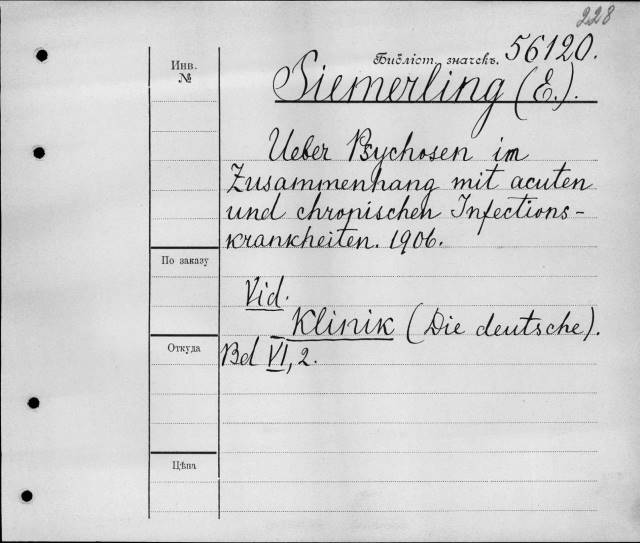 228
Библіот. значекъ. 56120.
Инв.
№
Siemerling (E.).
Ueber Psychosen im
Zusammenhang mit acuten
und chronischen Infections-
krankheiten. 1906.
По заказу
Vid.
Klinik (Die deutsche).
Откуда
Bd VI, 2.
Цѣна